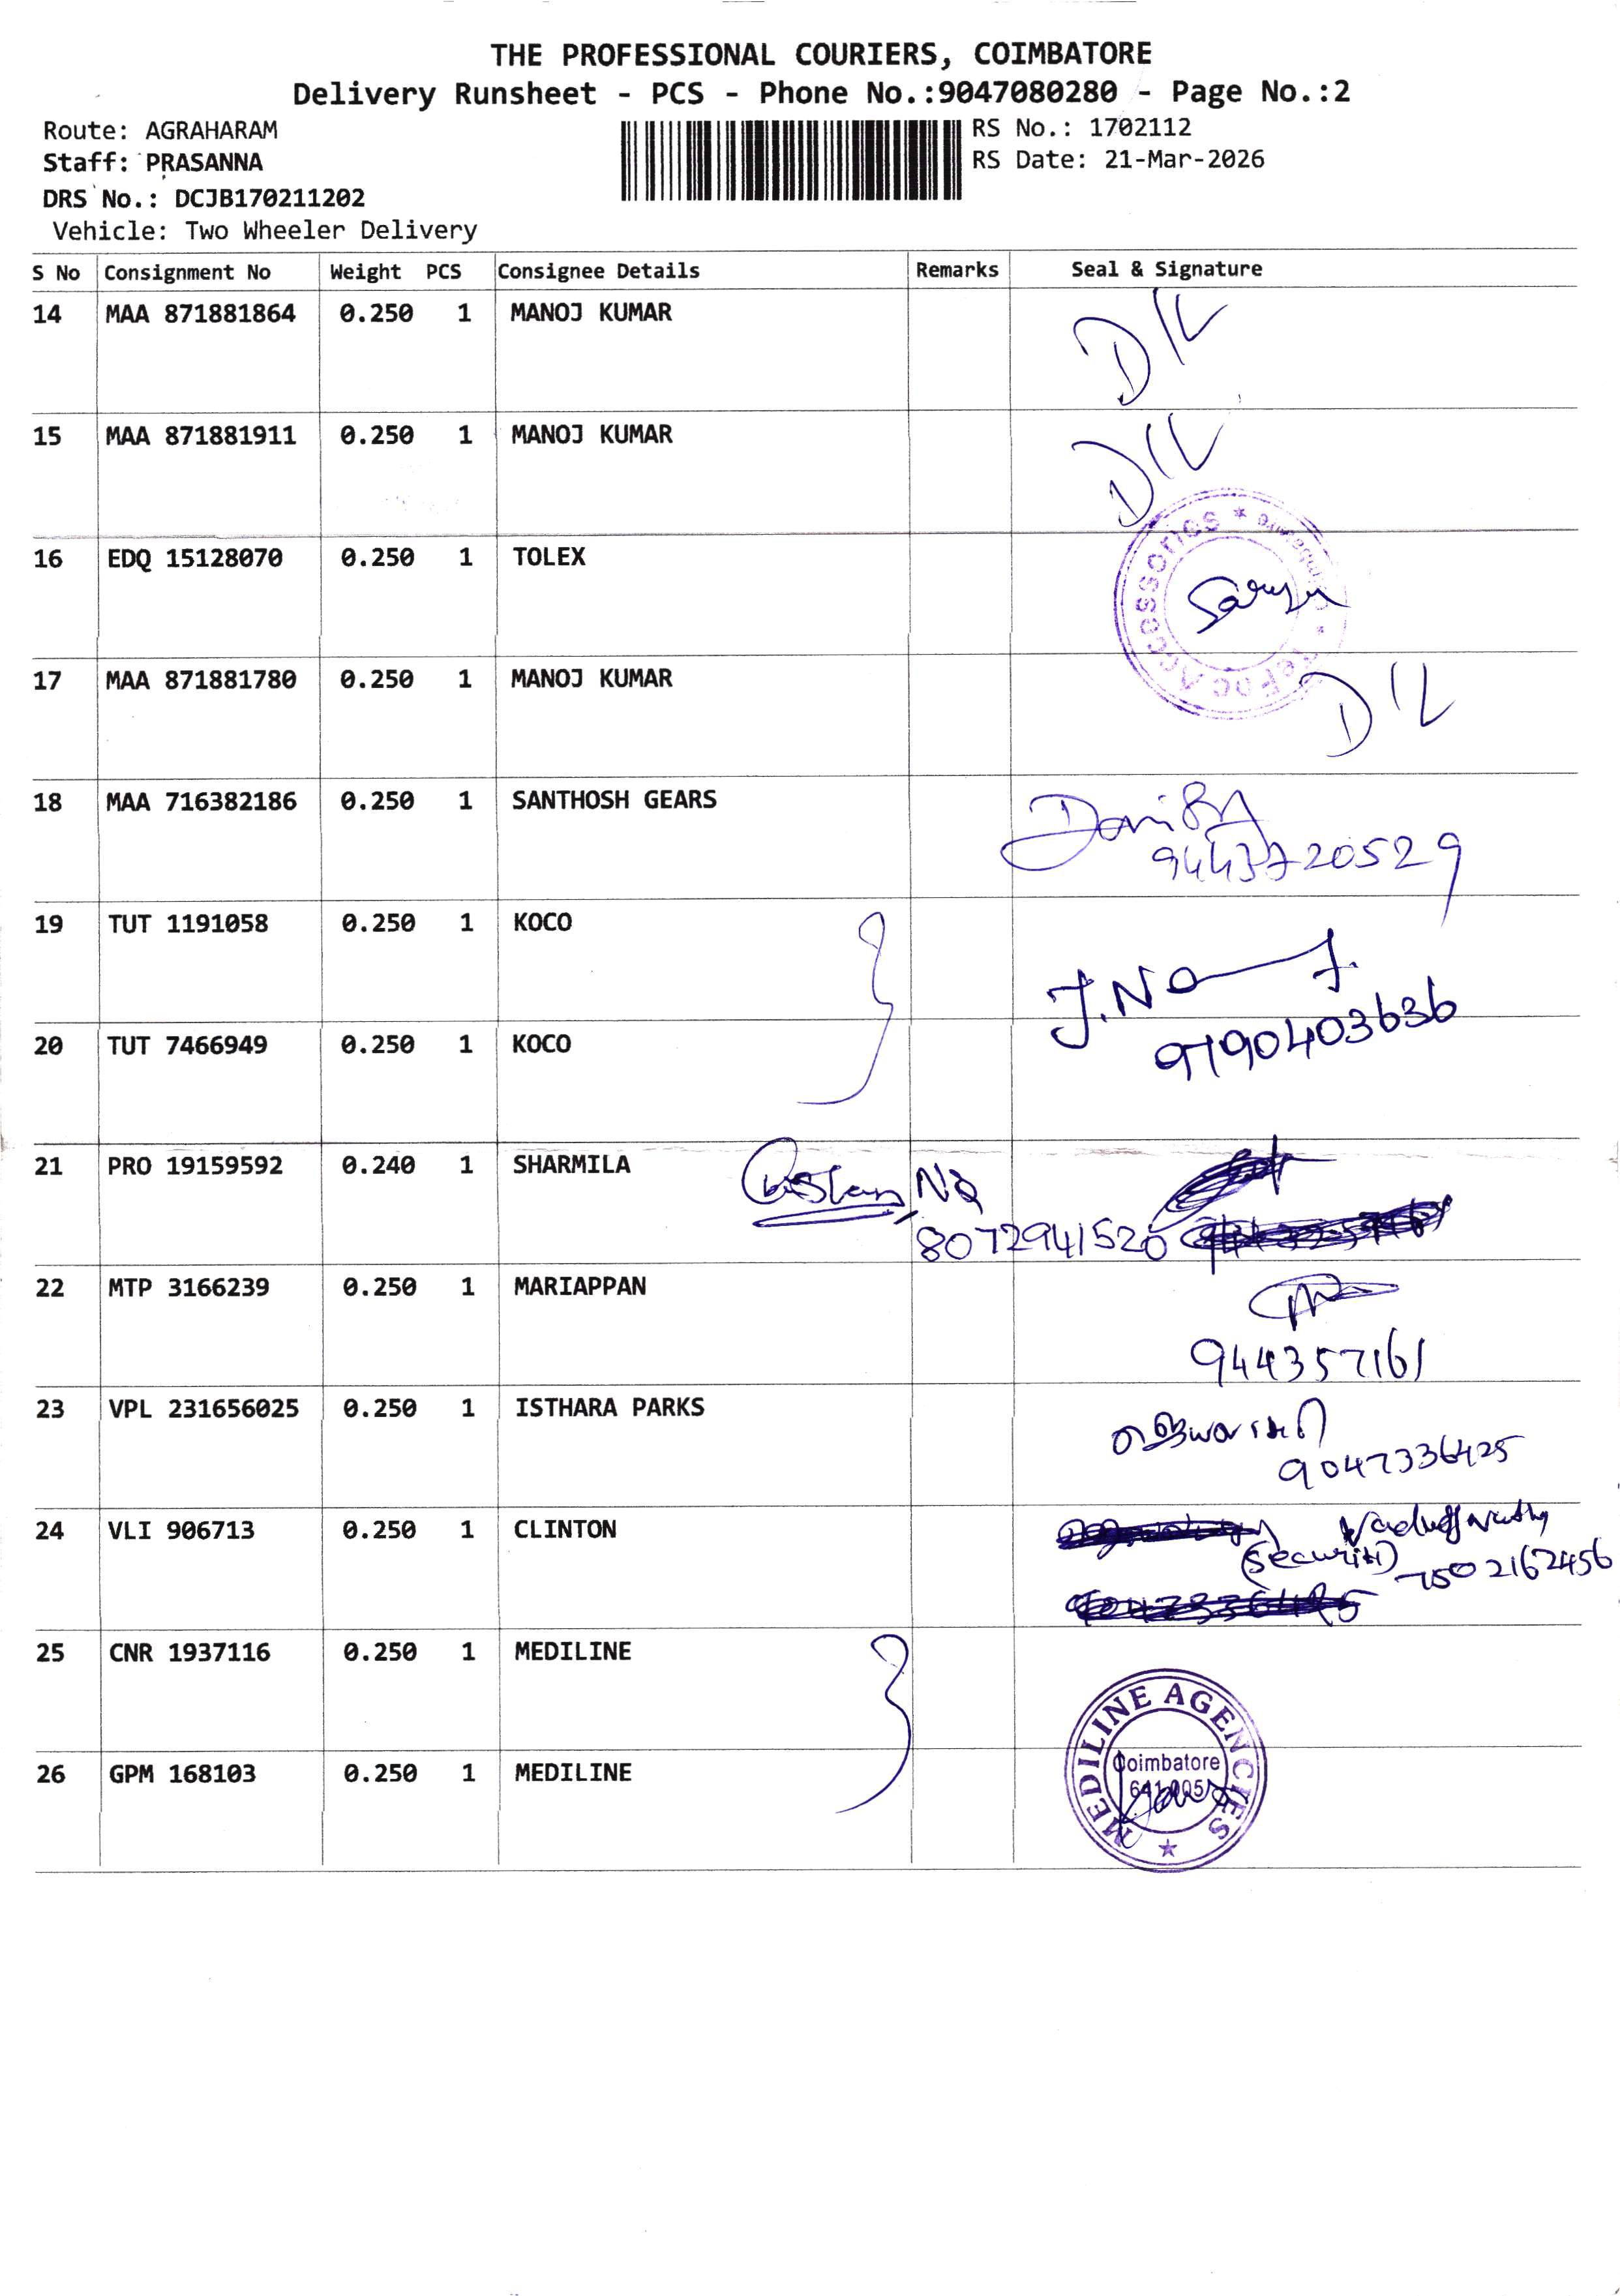 THE PROFESSIONAL COURIERS, COIMBATORE
Delivery Runsheet - PCS - Phone No.:9047080280 - Page No.:2
Route: AGRAHARAM
Staff: PRASANNA
DRS No.: DCJB170211202
Vehicle: Two Wheeler Delivery
RS No.: 1702112
RS Date: 21-Mar-2026
S No Consignment No Weight PCS Consignee Details Remarks Seal & Signature
14 MAA 871881864 0.250 1 MANOJ KUMAR
15 MAA 871881911 0.250 1 MANOJ KUMAR
16 EDQ 15128070 0.250 1 TOLEX
Accessories
17 MAA 871881780 0.250 1 MANOJ KUMAR
18 MAA 716382186 0.250 1 SANTHOSH GEARS
9443720529
19 TUT 1191058 0.250 1 KOCO
20 TUT 7466949 0.250 1 KOCO
9790403636
21 PRO 19159592 0.240 1 SHARMILA
No
8072941520
22 MTP 3166239 0.250 1 MARIAPPAN
944357161
23 VPL 231656025 0.250 1 ISTHARA PARKS
9047336425
24 VLI 906713 0.250 1 CLINTON
(Securiti) 7502162456
25 CNR 1937116 0.250 1 MEDILINE
26 GPM 168103 0.250 1 MEDILINE
MEDILINE AGENCIES
Coimbatore
641 005